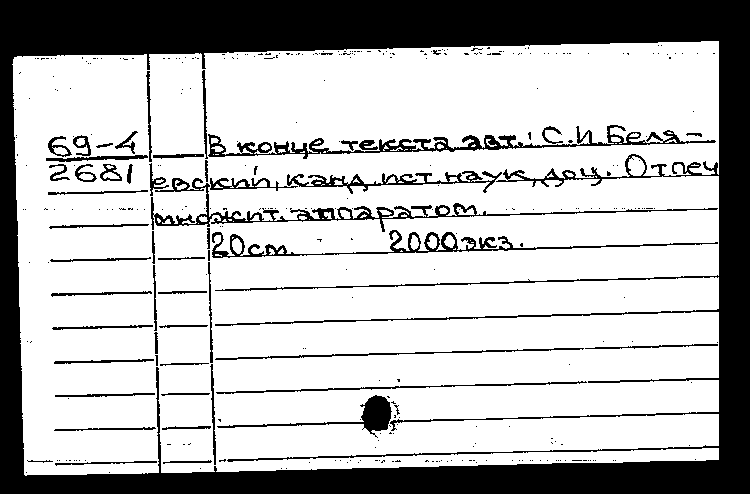 69-4 В конце текста авт.: С.И. Беля-
2681 евский, канд. ист. наук, доц. Отпеч
множит. аппаратом.
20 см. 2000 экз.